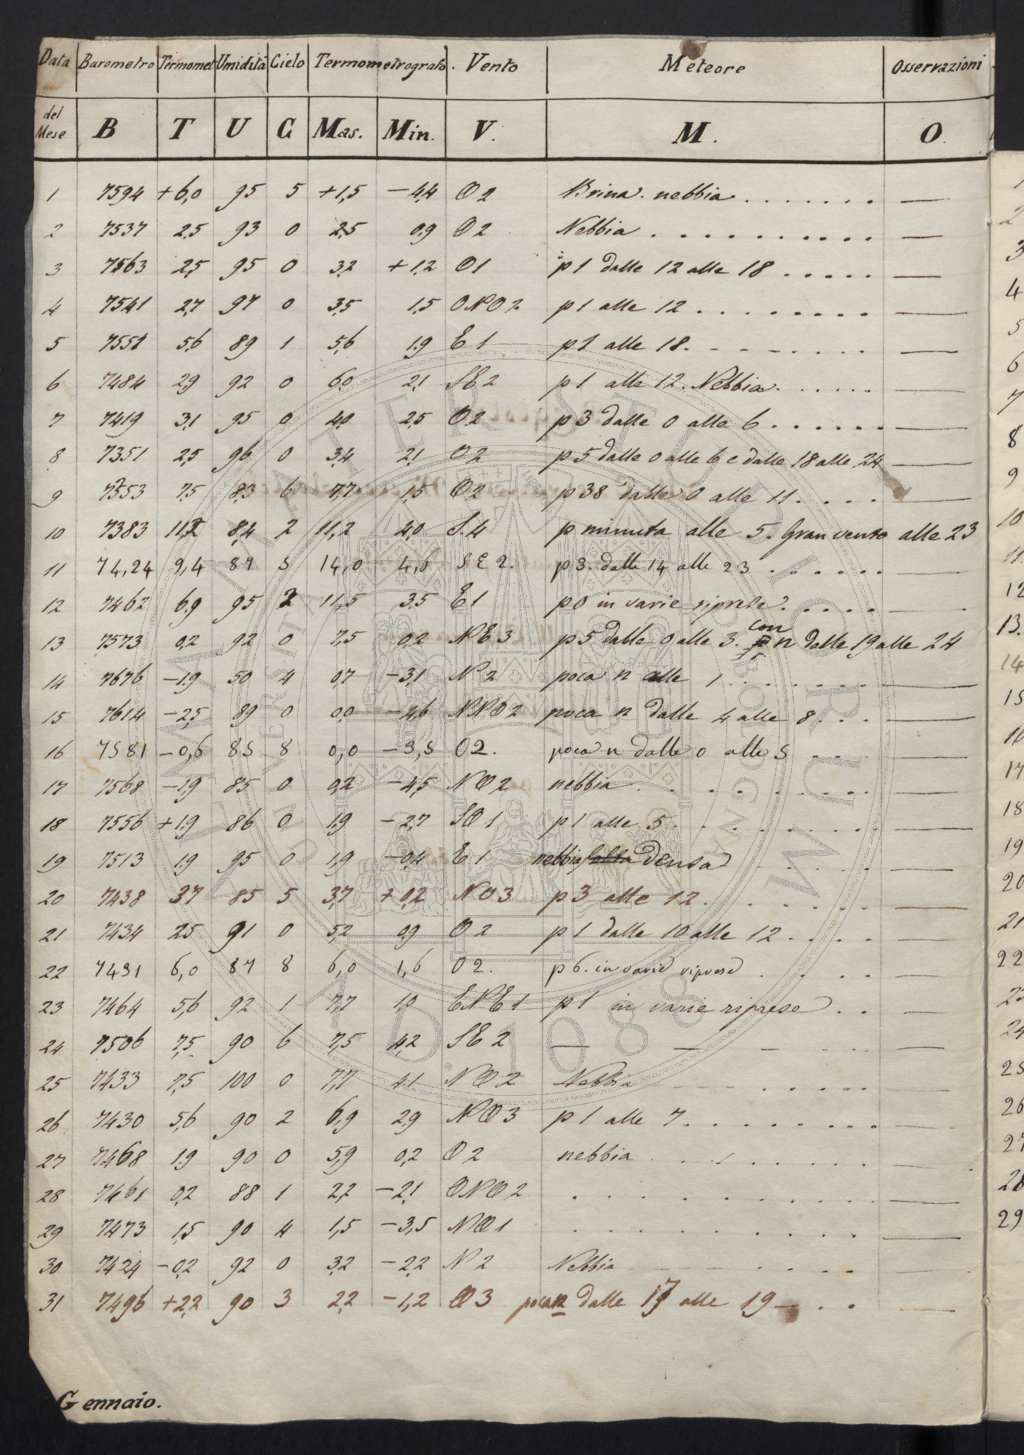 Data Barometro Termomet Umidità Cielo Termometrografo. Vento Meteore Osservazioni
del Mese B T U C Mas. Min. V. M. O.
1 7594 +6,0 95 5 +1,5 −4,4 O 2 Brina. nebbia . . . . . . . —
2 7537 2,5 93 0 2,5 0,9 O 2 Nebbia . . . . . . . . . . —
3 7563 2,5 95 0 3,2 +1,2 O 1 p 1 dalle 12 alle 18 . . . . . —
4 7541 2,7 97 0 3,5 1,5 ONO 2 p 1 alle 12 . . . . . . . . . —
5 7551 5,6 89 1 5,6 1,9 E 1 p 1 alle 18. . . . . . . . —
6 7484 2,9 92 0 6,0 2,1 SE 2 p 1 alle 12. Nebbia. . . . . . —
7 7419 3,1 95 0 4,0 2,5 O 2 p 3 dalle 0 alle 6 . . . . . . —
8 7351 2,5 96 0 3,4 2,1 O 2 p 5 dalle 0 alle 6 e dalle 18 alle 24 —
9 7353 7,5 83 6 7,7 1,5 O 2 p 38 dalle 0 alle 11 . . . . —
10 7383 11,2 8,4 2 11,2 4,0 S. 4 p minuta alle 5. Gran vento alle 23
11 74,24 9,4 87 5 14,0 4,6 SE 2. p 3. dalle 14 alle 23 . . . . . . —
12 7462 6,9 95 2 11,5 3,5 E 1 p 0 in varie riprese. . . . . —
13 7573 0,2 92 0 7,5 0,2 NE 3 p 5 dalle 0 alle 3. con n dalle 19 alle 24
14 7676 −1,9 50 4 0,7 −3,1 N 2 poca n alle 1 . . . . . . . —
15 7614 −2,5 89 0 0,0 −4,6 NNO 2 poca n dalle 4 alle 8. . . —
16 7581 −0,6 85 8 0,0 −3,5 O 2. poca n dalle 0 alle 5 . . . —
17 7568 −1,9 85 0 0,2 −4,5 NO 2 nebbia . . . . . . . . —
18 7556 +1,9 86 0 1,9 −2,7 SO 1 p 1 alle 5 . . . . . . . . —
19 7513 1,9 95 0 1,9 −0,4 E 1 nebbia densa . . . . —
20 7438 3,7 85 5 3,7 +0,2 NO 3 p 3 alle 12. . . . . . . —
21 7434 2,5 91 0 5,2 0,9 O 2 p 1 dalle 10 alle 12 . . . . —
22 7431 6,0 87 8 6,0 1,6 O 2. p 6. in varie riprese . . . . —
23 7464 5,6 92 1 7,7 1,9 ENE 1 p 1 in varie riprese . . —
24 7506 7,5 90 6 7,5 4,2 SE 2 — — — . . —
25 7433 7,5 100 0 7,7 4,1 NO 2 Nebbia . . . . —
26 7430 5,6 90 2 6,9 2,9 NO 3 p 1 alle 7 . . . . . . . . . —
27 7468 1,9 90 0 5,9 0,2 O 2 nebbia . . . . . . —
28 7461 0,2 88 1 2,2 −2,1 ONO 2 . . . . . . . . . . —
29 7473 1,5 90 4 1,5 −3,5 NO 1 . . . . . . . . . —
30 7424 −0,2 92 0 3,2 −2,2 N 2 Nebbia . . . . . —
31 7496 +2,2 90 3 2,2 −1,2 O 3 poca n dalle 17 alle 19 — . . . —
Gennaio.